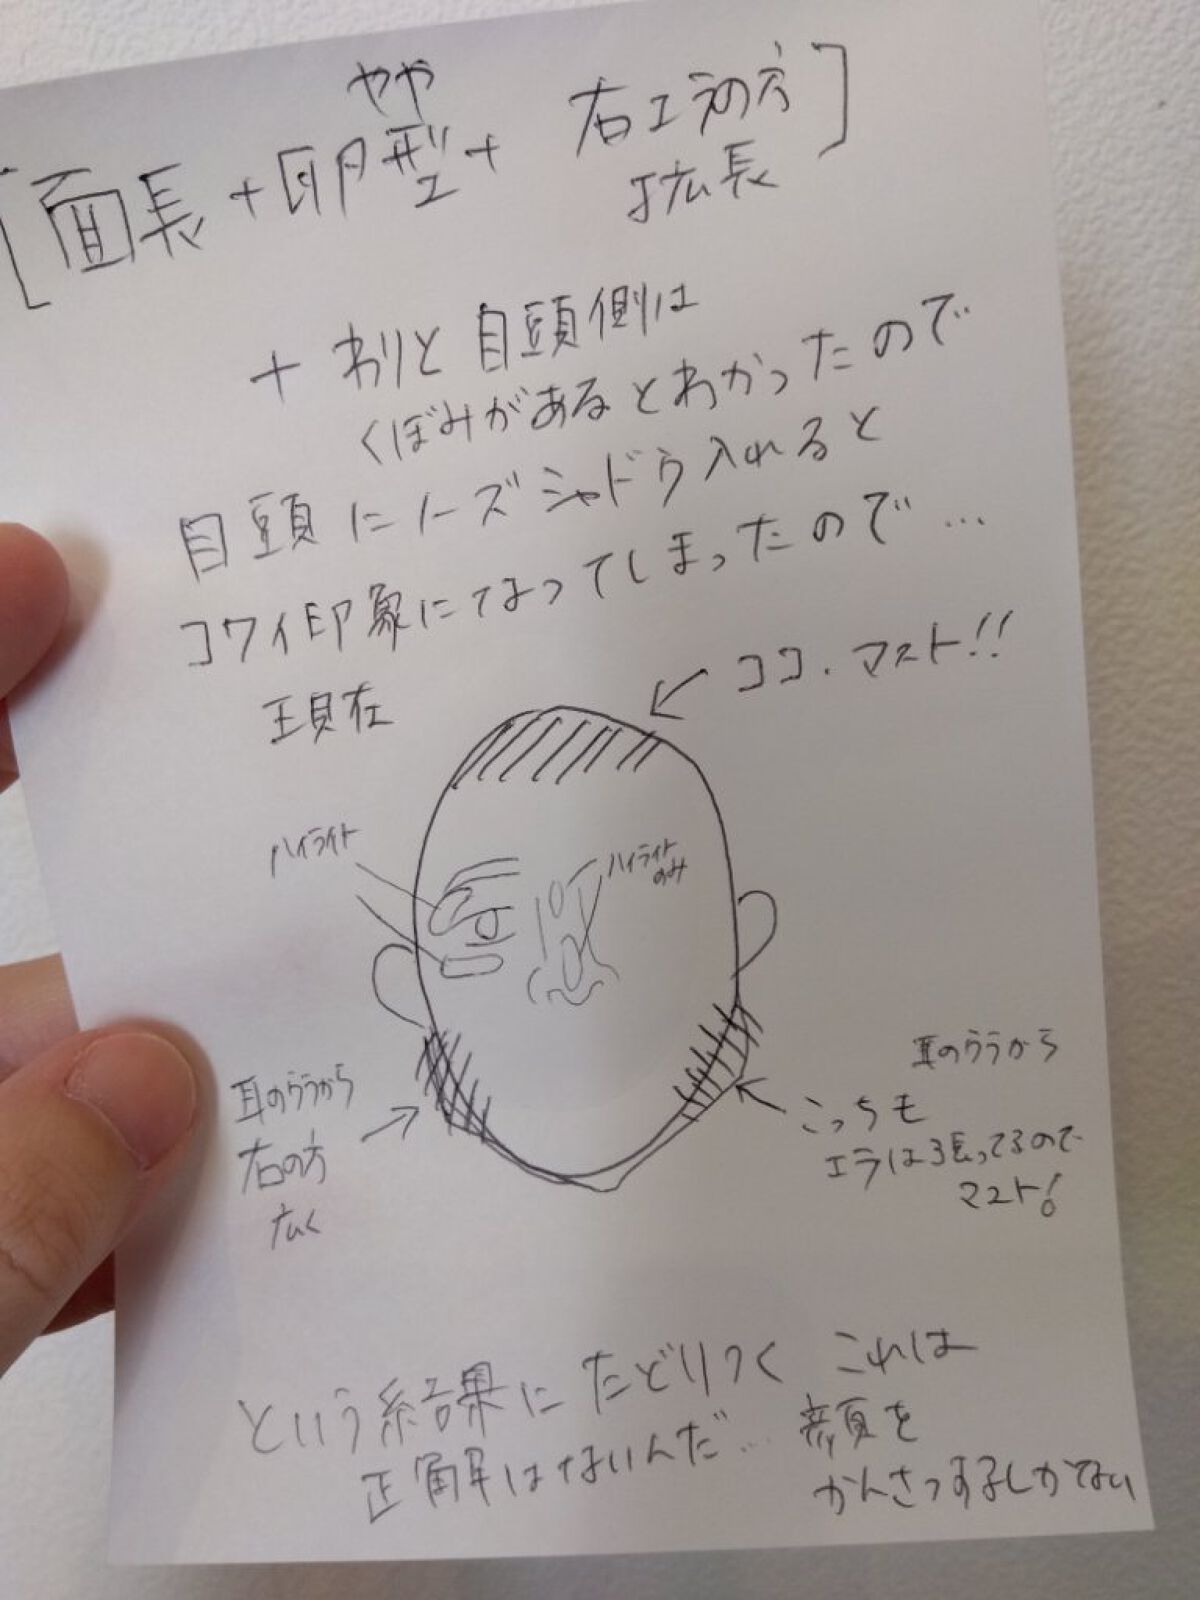 [面長+やや卵型+右エラの方拡長]
+ わりと目頭側は
くぼみがあるとわかったので
目頭にノーズシャドウ入れると
コワイ印象になってしまったので…
現在
ココ.マスト!!
ハイライト
ハイライト
のみ
耳のウラから
右の方
広く
耳のウラから
こっちも
エラは張ってるので
マスト!
という結果にたどりつく これは
正解はないんだ… 顔を
かんさつするしかない